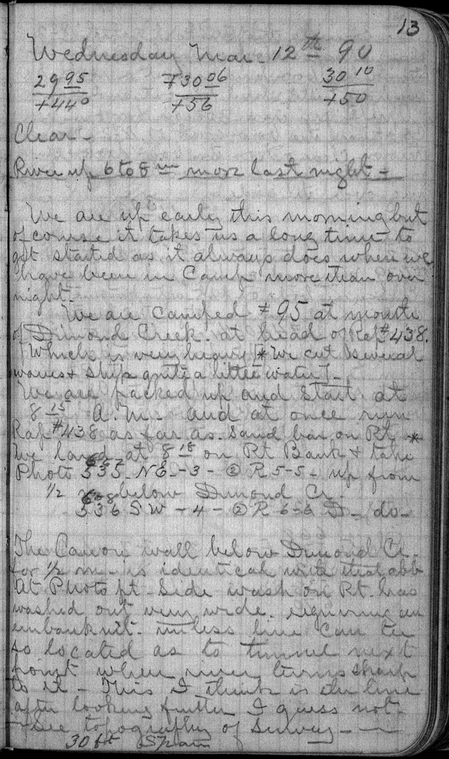 13
Wednesday Mar. 12th 90
29 95 730 06 30 10
+44° +56 +50
Clear-
River up 6 to 8 in more last night-
We are up early this morning but
of course it takes us a long time to
get started as it always does when we
have been in Camp more than over
night.
We are camped # 95 at mouth
of Dimond Creek. at head of Rap #438.
Which is very heavy * We cut several
waves & ship quite a little water
We are packed up and Start at
8 15 A.M. and at once run
Rap #438 as far as Sand bar on Rt *
We land at 8 18 on Rt Bank & take
Photo 535 N E - 3 - ② R 5-5- up from
1/2 below Dimond Cr.
536 S W - 4 - ② R 6-6 D- do-
The Canon wall below Dimond Cr.
for 1/2 m- is identical with that abb
At Photo pt. Side wash on Rt. has
washed out very wide. requiring an
embankmt. unless line Can be
so located as to tunnel next
point where river turns sharp
to it - This I think is the line
after looking further I guess not-
- See topography of Survey-
30 ft Span